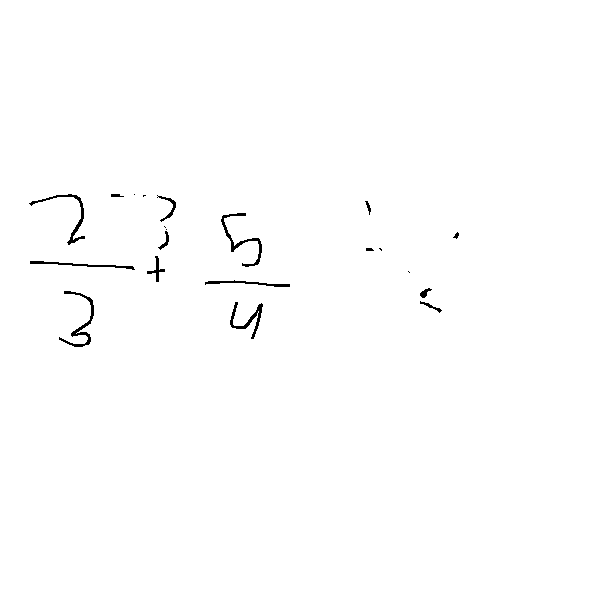 2/3 + 5/4